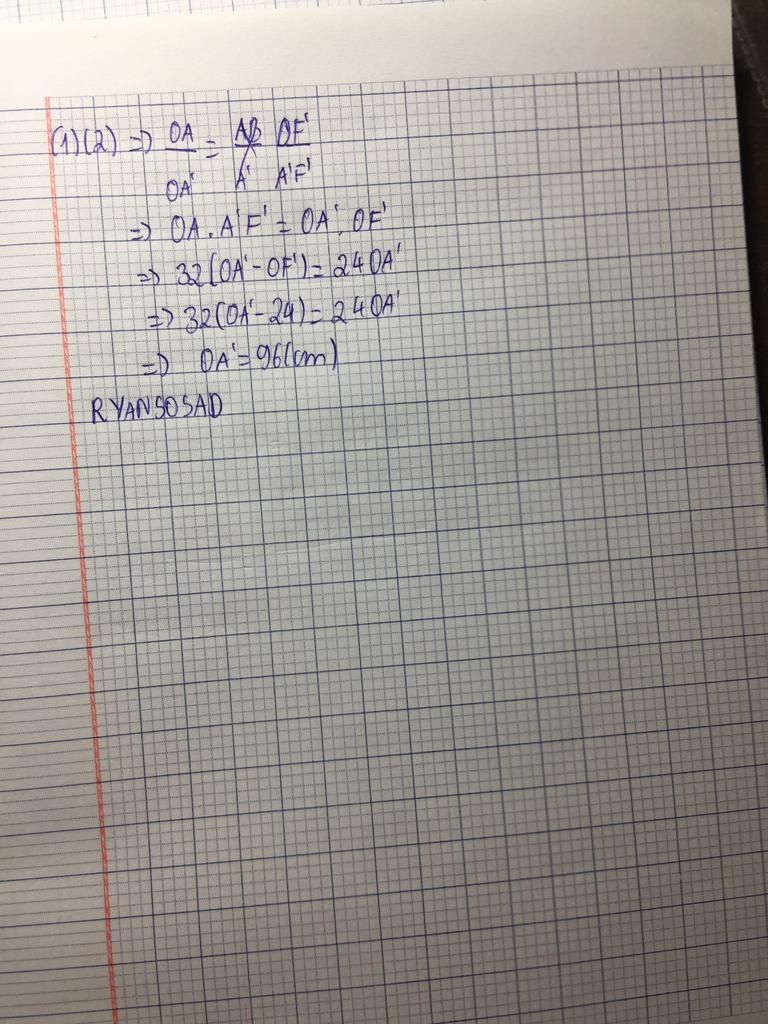 (1)(2) => OA/OA' = OF'/A'F'
=> OA.A'F' = OA'.OF'
=> 32(OA'-OF') = 24OA'
=> 32(OA'-24) = 24OA'
=> OA' = 96(cm)
RYANSOSAD